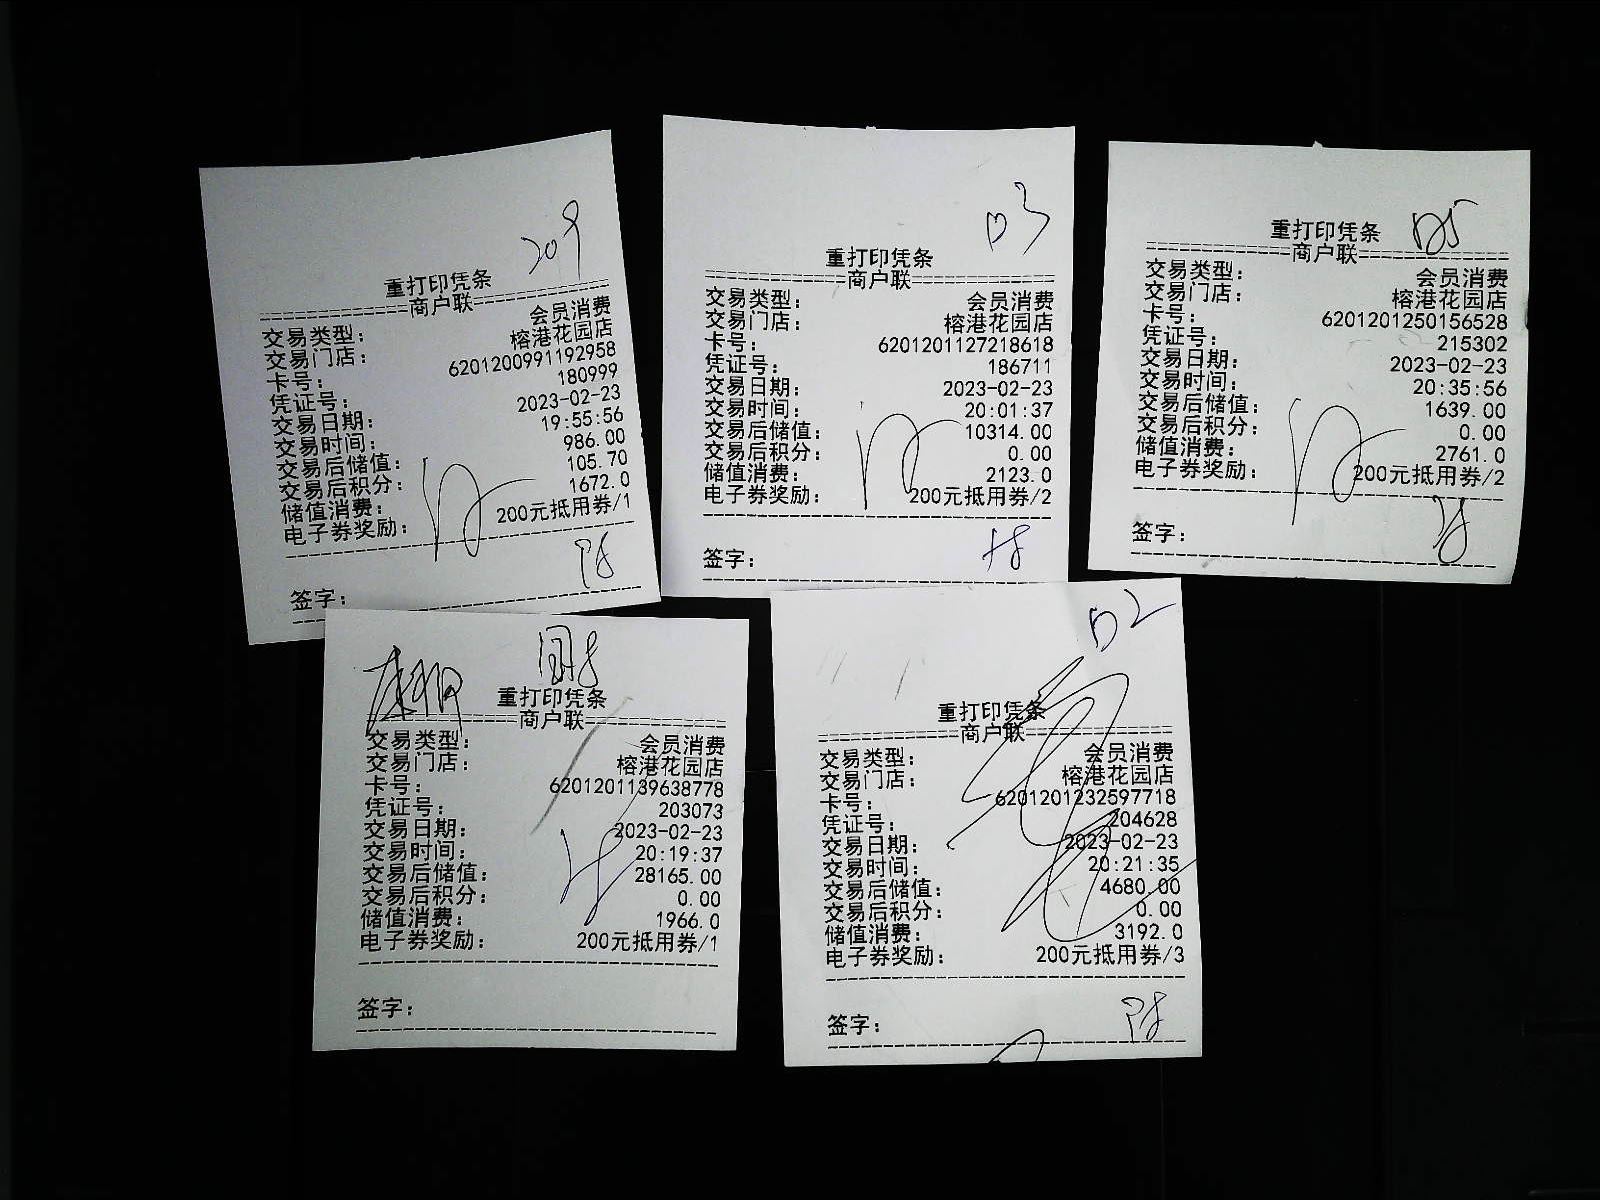 209
重打印凭条
商户联
交易类型： 会员消费
交易门店： 榕港花园店
卡号： 6201200991192958
凭证号： 180999
交易日期： 2023-02-23
交易时间： 19:55:56
交易后储值： 986.00
交易后积分： 105.70
储值消费： 1672.0
电子券奖励： 200元抵用券/1
签字：
D3
重打印凭条
商户联
交易类型： 会员消费
交易门店： 榕港花园店
卡号： 6201201127218618
凭证号： 186711
交易日期： 2023-02-23
交易时间： 20:01:37
交易后储值： 10314.00
交易后积分： 0.00
储值消费： 2123.0
电子券奖励： 200元抵用券/2
签字：
D5
重打印凭条
商户联
交易类型： 会员消费
交易门店： 榕港花园店
卡号： 6201201250156528
凭证号： 215302
交易日期： 2023-02-23
交易时间： 20:35:56
交易后储值： 1639.00
交易后积分： 0.00
储值消费： 2761.0
电子券奖励： 200元抵用券/2
签字：
重打印凭条
商户联
交易类型： 会员消费
交易门店： 榕港花园店
卡号： 6201201139638778
凭证号： 203073
交易日期： 2023-02-23
交易时间： 20:19:37
交易后储值： 28165.00
交易后积分： 0.00
储值消费： 1966.0
电子券奖励： 200元抵用券/1
签字：
D2
重打印凭条
商户联
交易类型： 会员消费
交易门店： 榕港花园店
卡号： 6201201232597718
凭证号： 204628
交易日期： 2023-02-23
交易时间： 20:21:35
交易后储值： 4680.00
交易后积分： 0.00
储值消费： 3192.0
电子券奖励： 200元抵用券/3
签字：